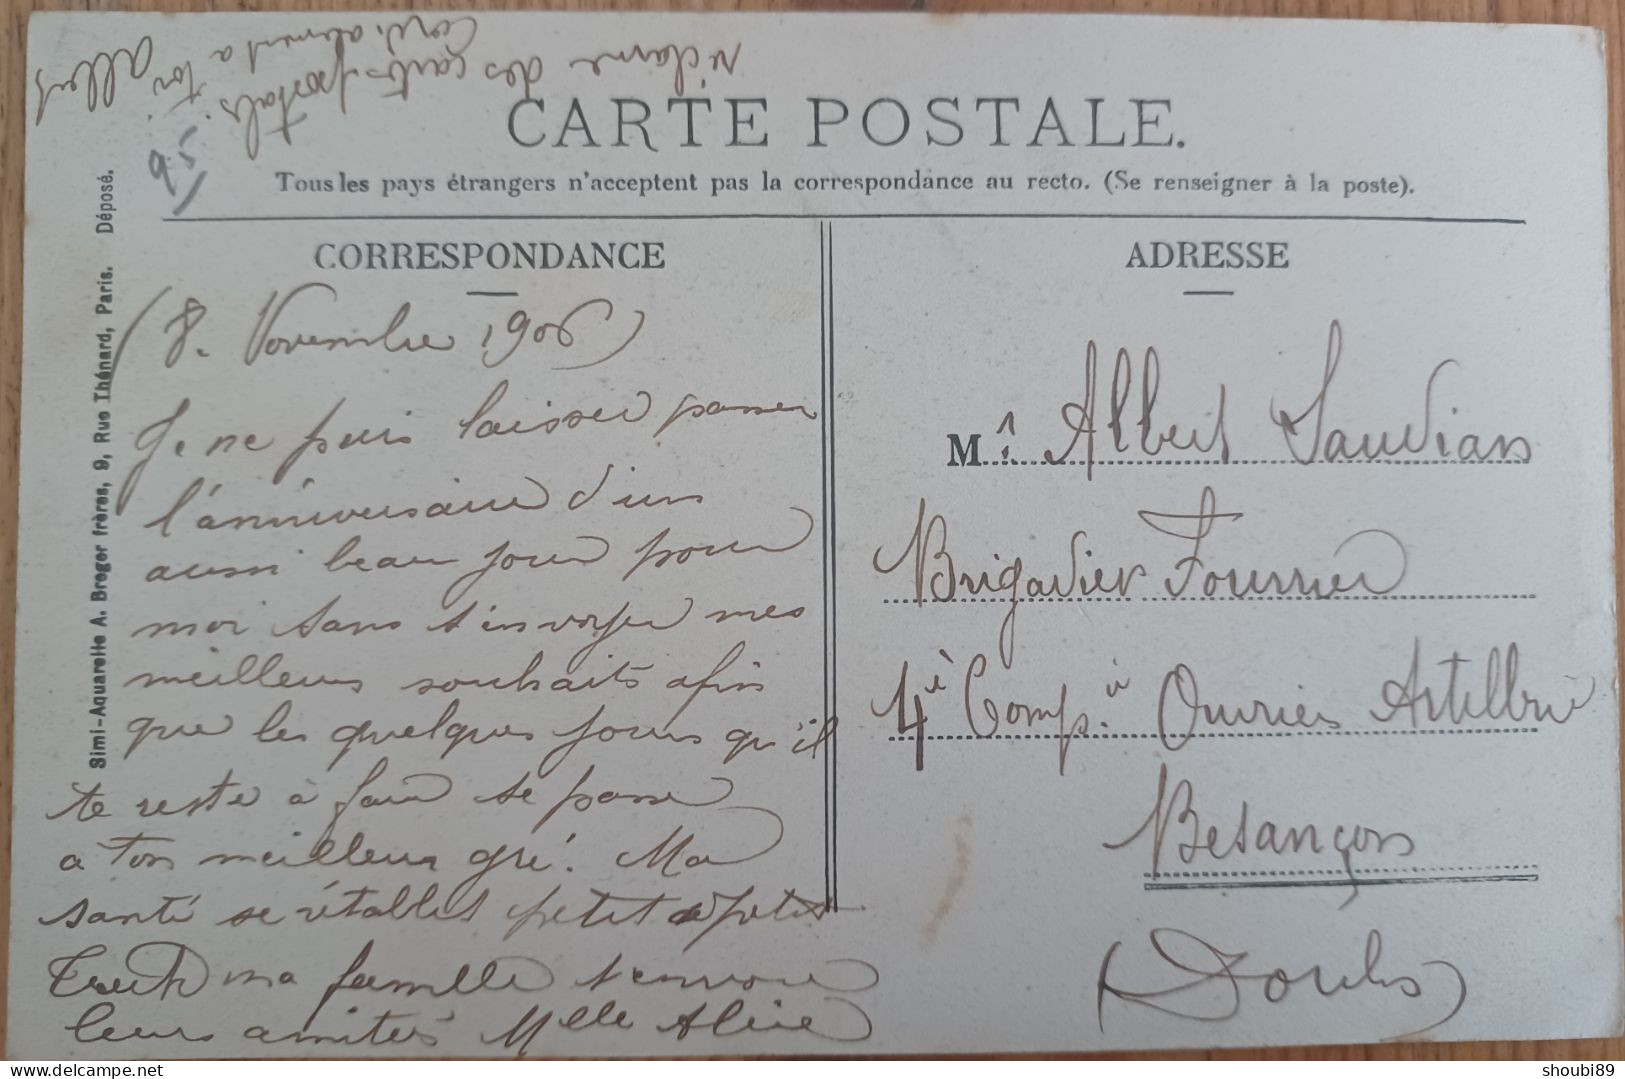 CARTE POSTALE.
Tous les pays étrangers n'acceptent pas la correspondance au recto. (Se renseigner à la poste).
CORRESPONDANCE
(8. Novembre 1906)
Je ne puis laisser passer
l'anniversaire d'un
aussi beau jour pour
moi sans t'envoyer mes
meilleurs souhaits afin
que les quelques jours qu'il
te reste à faire se passe
a ton meilleur gré. Ma
santé se rétablit petit a petit
Toute ma famille t'envoie
leurs amitiés Mlle Aline
réclame des cartes postals
Cordialement a ton
95
ADRESSE
M. r Albert Saudian
Brigadier Fourrier
4e Comp. Ouvriers Artillerie
Besançon
(Doubs)
Simi-Aquarelle A. Breger frères, 9, Rue Thénard, Paris. Déposé.
shoubi89